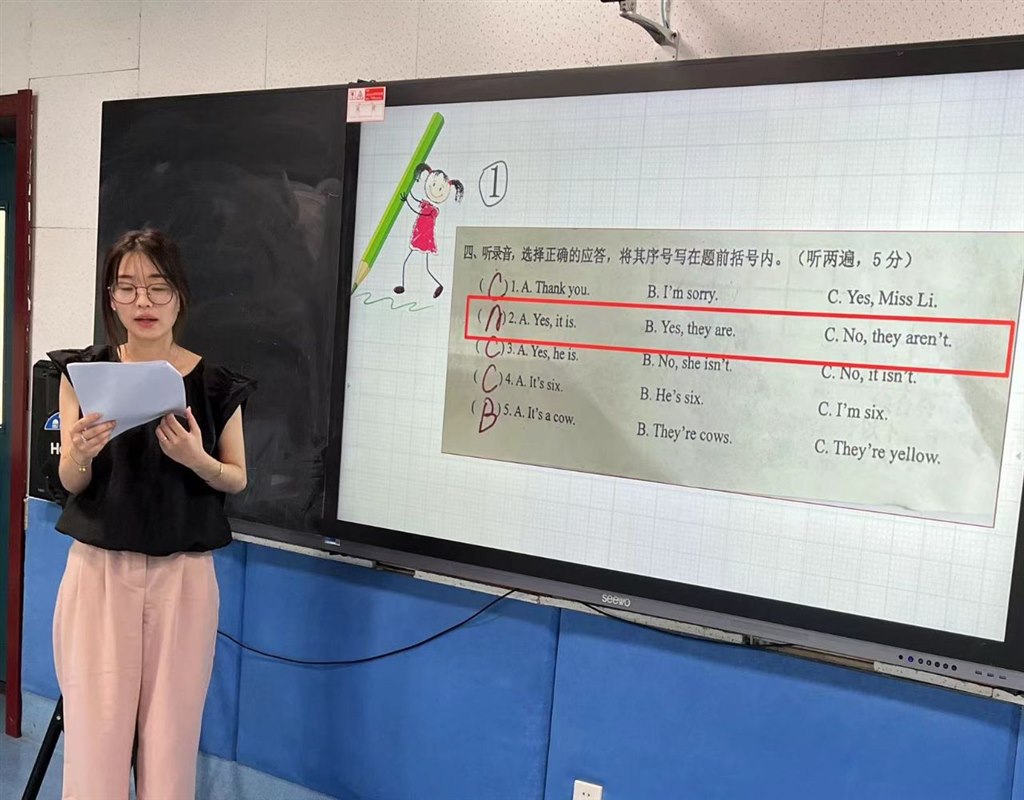 ①
四、听录音，选择正确的应答，将其序号写在题前括号内。（听两遍，5分）
( C ) 1. A. Thank you. B. I'm sorry. C. Yes, Miss Li.
( A ) 2. A. Yes, it is. B. Yes, they are. C. No, they aren't.
( C ) 3. A. Yes, he is. B. No, she isn't. C. No, it isn't.
( C ) 4. A. It's six. B. He's six. C. I'm six.
( B ) 5. A. It's a cow. B. They're cows. C. They're yellow.
seewo